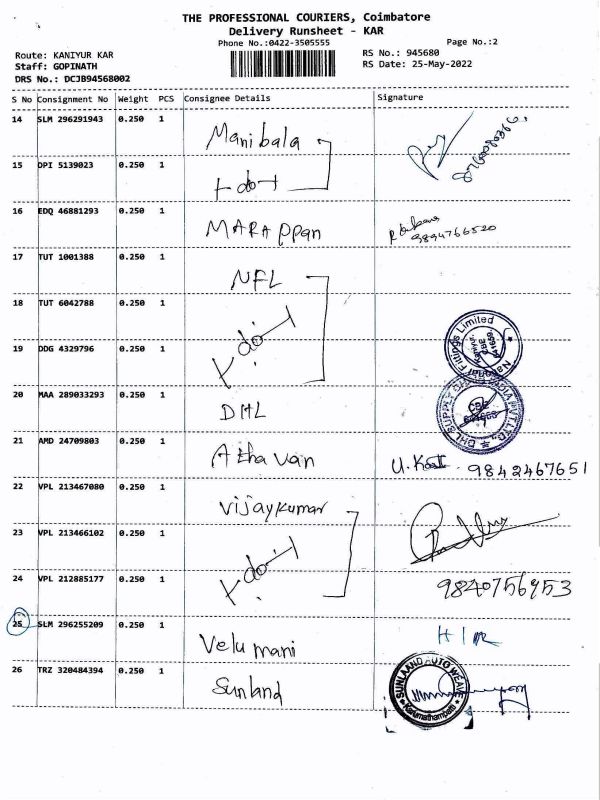 THE PROFESSIONAL COURIERS, Coimbatore
Delivery Runsheet - KAR
Phone No.:0422-3505555
Page No.:2
Route: KANIYUR KAR
RS No.: 945680
Staff: GOPINATH
RS Date: 25-May-2022
DRS No.: DCJB94568002
S No Consignment No Weight PCS Consignee Details Signature
14 SLM 296291943 0.250 1 Manibala
15 DPI 5139023 0.250 1 -do-
16 EDQ 46881293 0.250 1 MARAPPan
9894766520
17 TUT 1001388 0.250 1 NFL
18 TUT 6042788 0.250 1 -do-
19 DDG 4329796 0.250 1
Fittings Limited
641659
20 MAA 289033293 0.250 1 DHL
DHL SUPPLY INDIA PVT LTD.,
CBE
21 AMD 24709803 0.250 1 Athavan U. 9842467651
22 VPL 213467080 0.250 1 Vijaykumar
23 VPL 213466102 0.250 1 -do-
24 VPL 212885177 0.250 1 9840756953
25 SLM 296255209 0.250 1 Velumani
26 TRZ 320484394 0.250 1 Sunland
SUNLAAND AUTO WEAVE
Karumathampatti